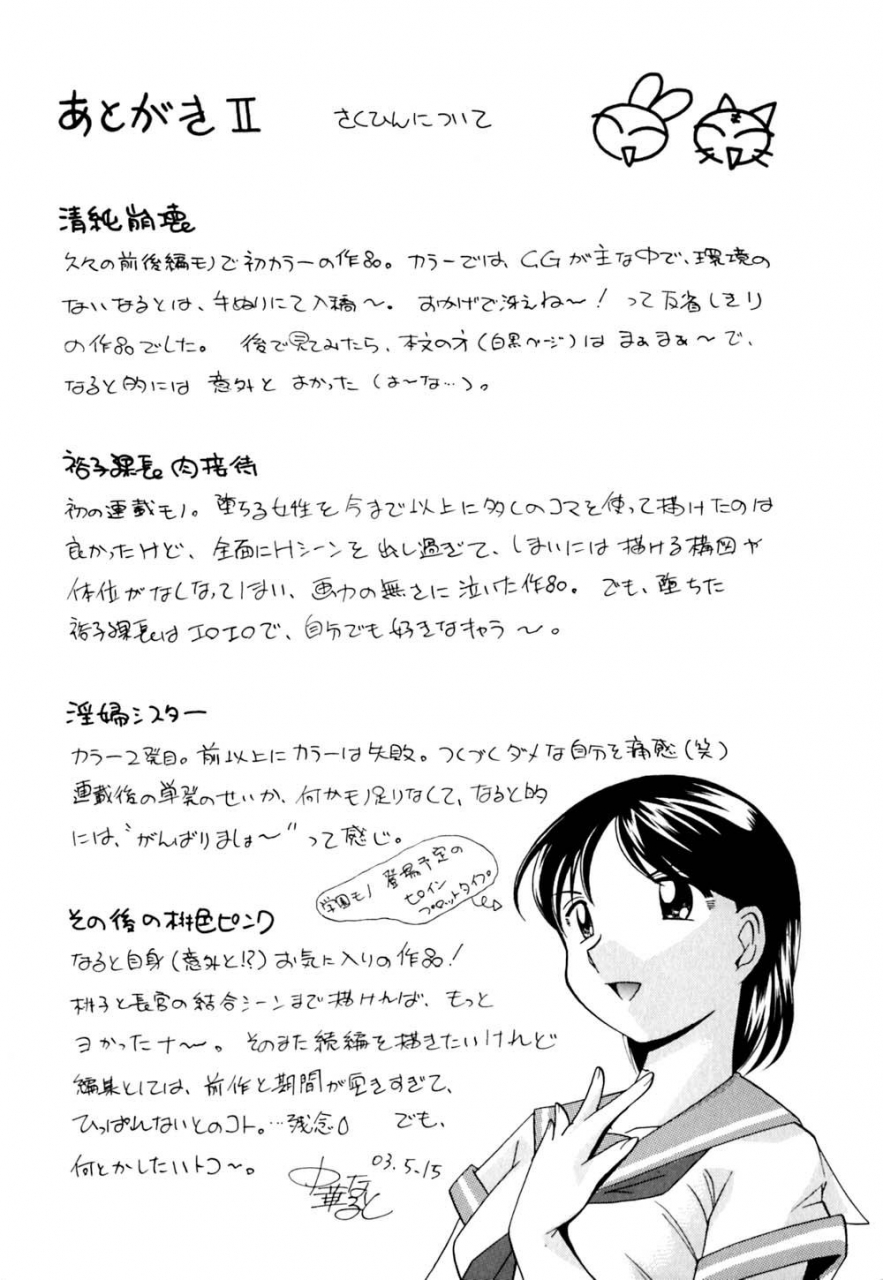 あとがきⅡ
さくひんについて
清純崩壊
久々の前後編モノで初カラーの作品。カラーでは、CGが主な中で、環境の
ないなるとは、手ぬりにて入稿～。おかげで冴えね～！って反省しきり
の作品でした。後で見てみたら、本文の方(白黒ページ)はまぁまぁ～で、
なると的には意外とよかった(は～な…)。
裕子課長 肉接待
初の連載モノ。堕ちる女性を今まで以上に多くのコマを使って描けたのは
良かったけど、全面にHシーンを出し過ぎて、しまいには描ける構図や
体位がなくなってしまい、画力の無さに泣いた作品。でも、堕ちた
裕子課長はエロエロで、自分でも好きなキャラ～。
淫婦シスター
カラー2発目。前以上にカラーは失敗。つくづくダメな自分を痛感(笑)
連載後の単発のせいか、何かモノ足りなくて、なると的
には、“がんばりましょ～”って感じ。
学園モノ 登場予定の
ヒロイン
プロットタイプ
その後の桃色ピンク
なると自身(意外と!?)お気に入りの作品！
桃子と長官の結合シーンまで描ければ、もっと
ヨかったナ～。そのまた続編を描きたいけれど
編集としては、前作と期間が空きすぎて、
ひっぱれないとのコト。…残念 でも、
何とかしたいトコ～。
03.5.15
中華なると